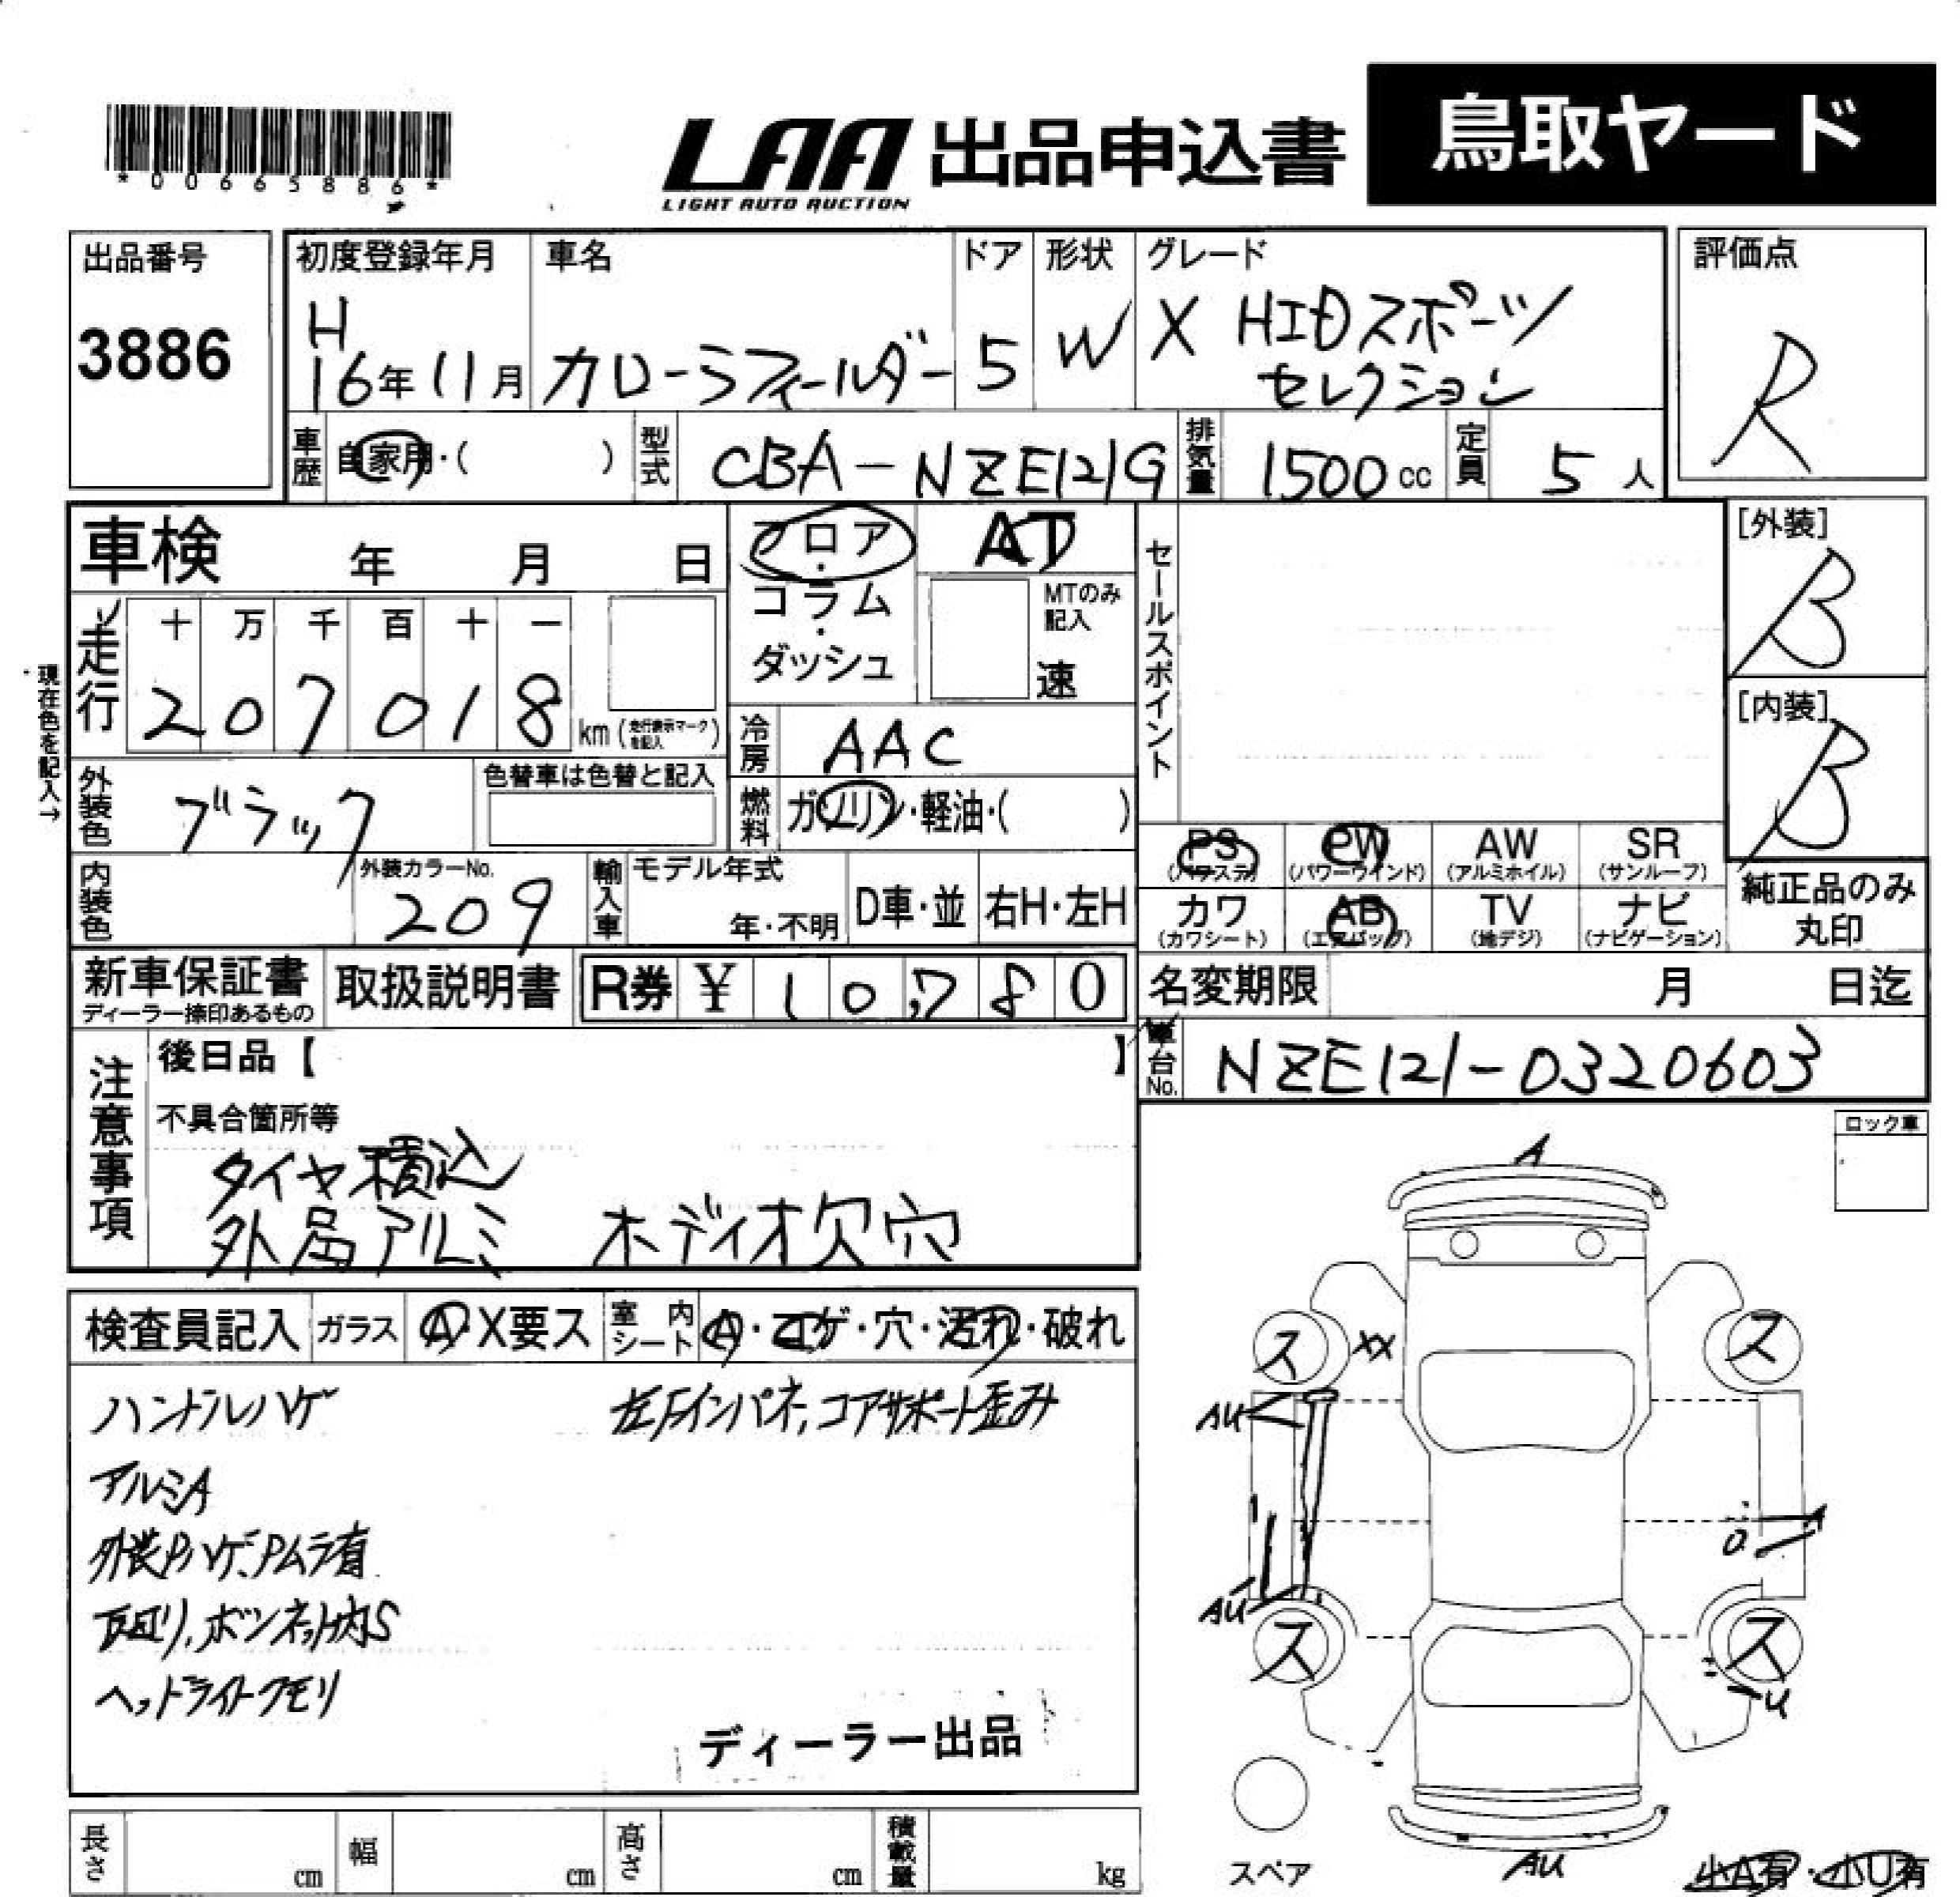 *00665886*
LAA 出品申込書 鳥取ヤード
LIGHT AUTO AUCTION
出品番号
3886
初度登録年月 車名 ドア 形状 グレード
H
16年11月 カローラフィールダー 5 W X HIDスポーツ
セレクション
評価点
R
車歴 自家用・( ) 型式 CBA-NZE121G 排気量 1500cc 定員 5人
車検 年 月 日
フロア・コラム・ダッシュ
AT
MTのみ記入
速
セールスポイント
[外装]
B
[内装]
B
現在色を記入→
走行 十 万 千 百 十 一
207018 km (走行表示マークを記入)
冷房 AAC
外装色 ブラック 色替車は色替と記入
燃料 ガソリン・軽油・( )
PS (パワステ) PW (パワーウインド) AW (アルミホイル) SR (サンルーフ)
カワ (カワシート) AB (エアバッグ) TV (地デジ) ナビ (ナビゲーション)
純正品のみ
丸印
内装色 外装カラーNo. 209 輸入車 モデル年式 年・不明 D車・並 右H・左H
新車保証書 ディーラー捺印あるもの 取扱説明書 R券 ¥ 10,780
名変期限 月 日迄
車台No. NZE121-0320603
注意事項
後日品【 】
不具合箇所等
タイヤ積込
外品アルミ オーディオ欠穴
ロック車
検査員記入 ガラス A・X要ス 室内シート A・コゲ・穴・汚れ・破れ
ハンドルハゲ 左Fインパネ,コアサポート歪み
アルミA
外装Pハゲ、Pムラ有
下回り,ボンネット内S
ヘッドライトクモリ
ディーラー出品
A
ス XX ス
AU
AU
ス ス
U
AU
スペア
小A有・小U有
長さ cm 幅 cm 高さ cm 積載量 kg